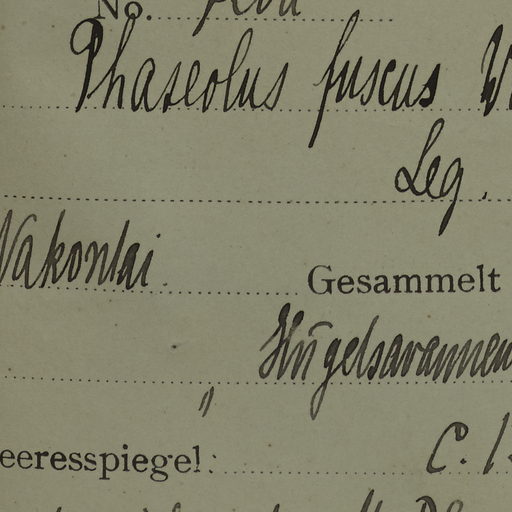 No.
Phaseolus fuscus W
Leg.
Nakontai Gesammelt
Hügelsavannen
"
eeresspiegel: C. 1